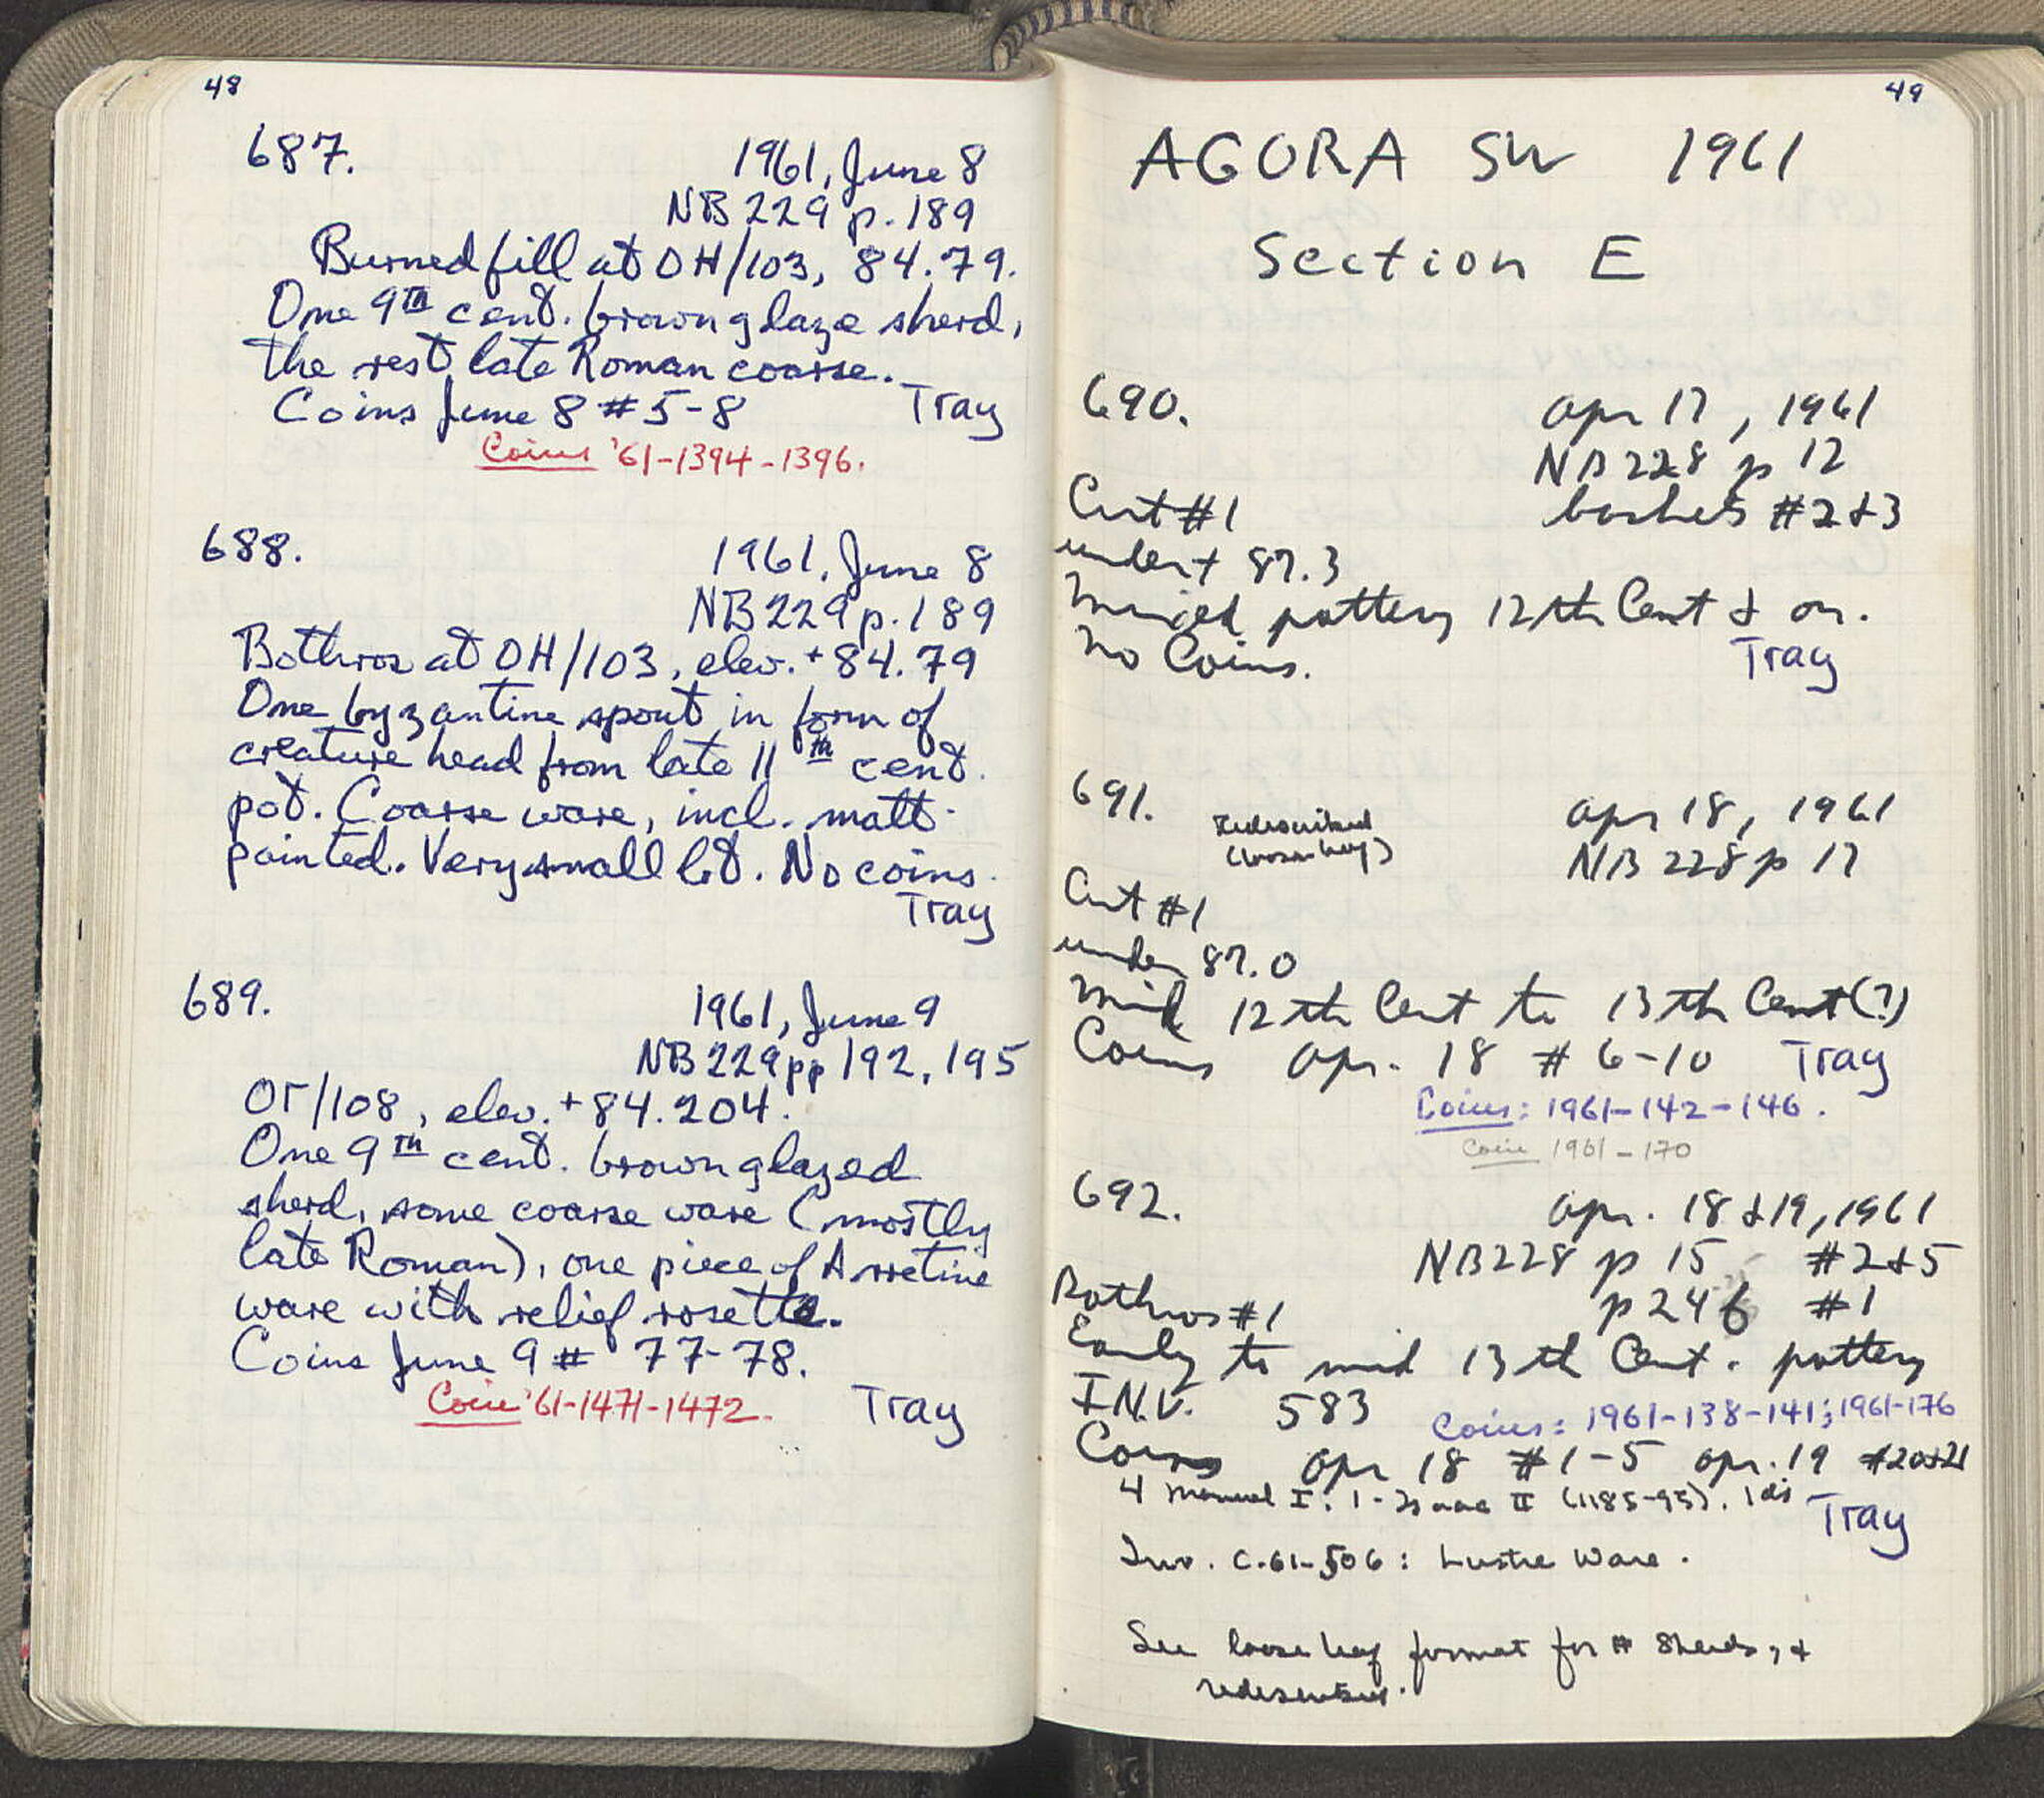 48
687.
1961, June 8
NB 229 p. 189
Burned fill at OH/103, 84.79.
One 9th cent. brown glaze sherd,
the rest late Roman coarse.
Coins June 8 #5-8 Tray
Coins '61-1394-1396.
688.
1961, June 8
NB 229 p. 189
Bothros at OH/103, elev. +84.79
One byzantine spout in form of
creature head from late 11th cent.
pot. Coarse ware, incl. matt-
painted. Very small lot. No coins.
Tray
689.
1961, June 9
NB 229 pp 192, 195
OΓ/108, elev. +84.204.
One 9th cent. brown glazed
sherd, some coarse ware (mostly
late Roman), one piece of Arretine
ware with relief rosette.
Coins June 9 # 77-78.
Coin '61-1471-1472. Tray
49
AGORA SW 1961
Section E
690. Apr 17, 1961
NB 228 p 12
Cut #1 baskets #2+3
under + 87.3
Mixed pottery 12th Cent + on.
No Coins. Tray
691. Redescribed Apr 18, 1961
(looseleaf) NB 228 p 17
Cut #1
under 87.0
Mid 12th Cent to 13th Cent(?)
Coins Apr. 18 # 6-10 Tray
Coins: 1961-142-146.
Coin 1961-170
692. Apr. 18+19, 1961
NB228 p 15 #2+5
Bothros #1 p 24 #1
Early to mid 13th Cent. pottery
INV. 583 Coins: 1961-138-141; 1961-176
Coins Apr 18 #1-5 Apr. 19 #20+21
4 Manuel I. 1-Isaac II (1185-95). 1 dis
Tray
Inv. C.61-506: Lustre Ware.
See looseleaf format for # sherds, +